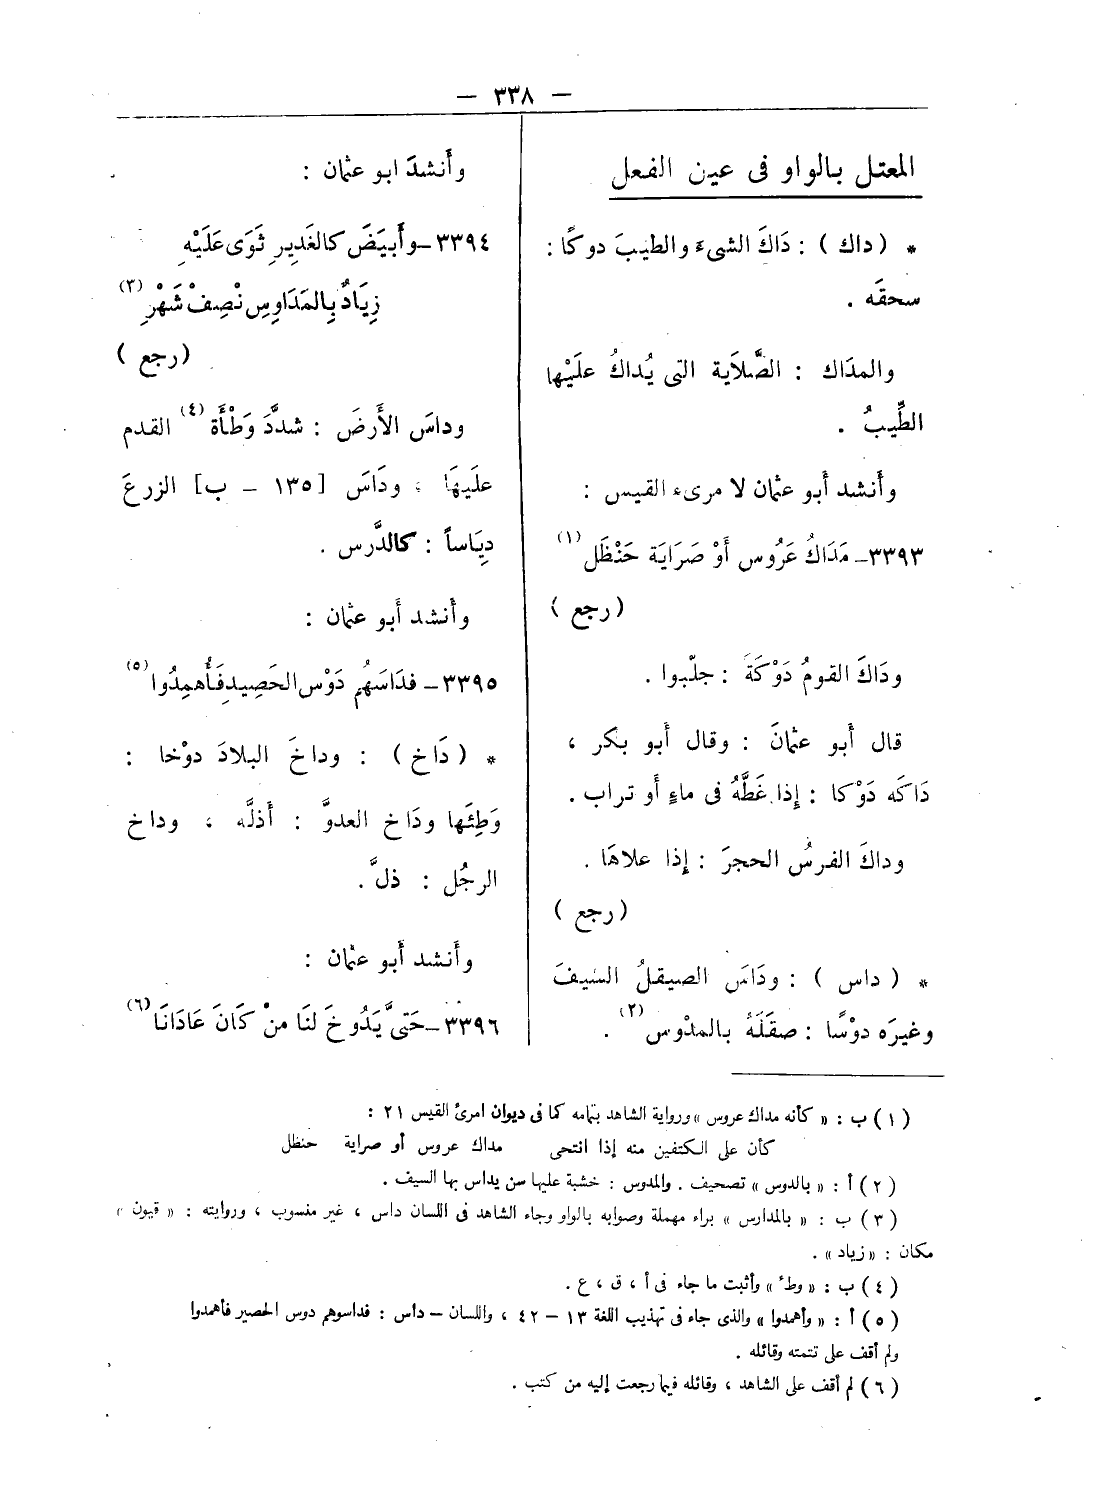 — ٣٣٨ —
المعتل بالواو فى عين الفعل
* ( داك ) : دَاكَ الشىءَ والطيبَ دوكًا :
سحقَه .
والمدَاك : الصَّلاَية التى يُداكُ علَيْها
الطِّيبُ .
وأَنشد أَبو عثمان لا مرىء القيس :
٣٣٩٣– مَدَاكُ عَرُوس أَوْ صَرَايَة حَنْظَل (١)
( رجع )
ودَاكَ القومُ دَوْكَةَ : جلّبوا .
قال أَبو عثمانَ : وقال أَبو بكر ،
دَاكَه دَوْكا : إِذا غَطَّهُ فى ماءٍ أَو تراب .
وداكَ الفرسُ الحجرَ : إِذا علاهَا .
( رجع )
* ( داس ) : ودَاسَ الصيقلُ السَيفَ
وغيرَه دوْسًا : صقَلَهُ بالمدْوس (٢) .
وأَنشدَ ابو عثمان :
٣٣٩٤–وأَبيَضَ كالغَدِيرِ ثَوَى عَلَيْهِ
زِيَادٌ بِالمَدَاوِسِ نْصِفْ شَهْرِ (٣)
( رجع )
وداسَ الأَرضَ : شدَّدَ وَطْأَة (٤) القدم
علَيهَا ، ودَاسَ [ ١٣٥ – ب ] الزرعَ
دِيَاساً : كالدَّرس .
وأَنشد أَبو عثمان :
٣٣٩٥– فدَاسَهُم دَوْس الحَصِيدِ فَأُهمِدُوا (٥)
* ( دَاخ ) : وداخَ البلادَ دوْخا :
وَطِئَها ودَاخ العدوَّ : أَذلَّه ، وداخ
الرجُل : ذلَّ .
وأَنشد أَبو عثمان :
٣٣٩٦–حَتىَّ يَدُوخَ لنَا منْ كَانَ عَادَانَا (٦)
( ١ ) ب : « كأنه مداك عروس » ورواية الشاهد بتمامه كما فى ديوان امرئ القيس ٢١ :
كأن على الكتفين منه إذا انتحى مداك عروس أو صراية حنظل
( ٢ ) أ : « بالدوس » تصحيف . والمدوس : خشبة عليها سن يداس بها السيف .
( ٣ ) ب : « بالمدارس » براء مهملة وصوابه بالواو وجاء الشاهد فى اللسان داس ، غير منسوب ، وروايته : « قيون »
مكان : « زياد » .
( ٤ ) ب : « وطء » وأثبت ما جاء فى أ ، ق ، ع .
( ٥ ) أ : « وأهمدوا » والذى جاء فى تهذيب اللغة ١٣ – ٤٢ ، واللسان – داس : فداسوهم دوس الحصير فأهمدوا
ولم أقف على تتمته وقائله .
( ٦ ) لم أقف على الشاهد ، وقائله فيما رجعت إليه من كتب .